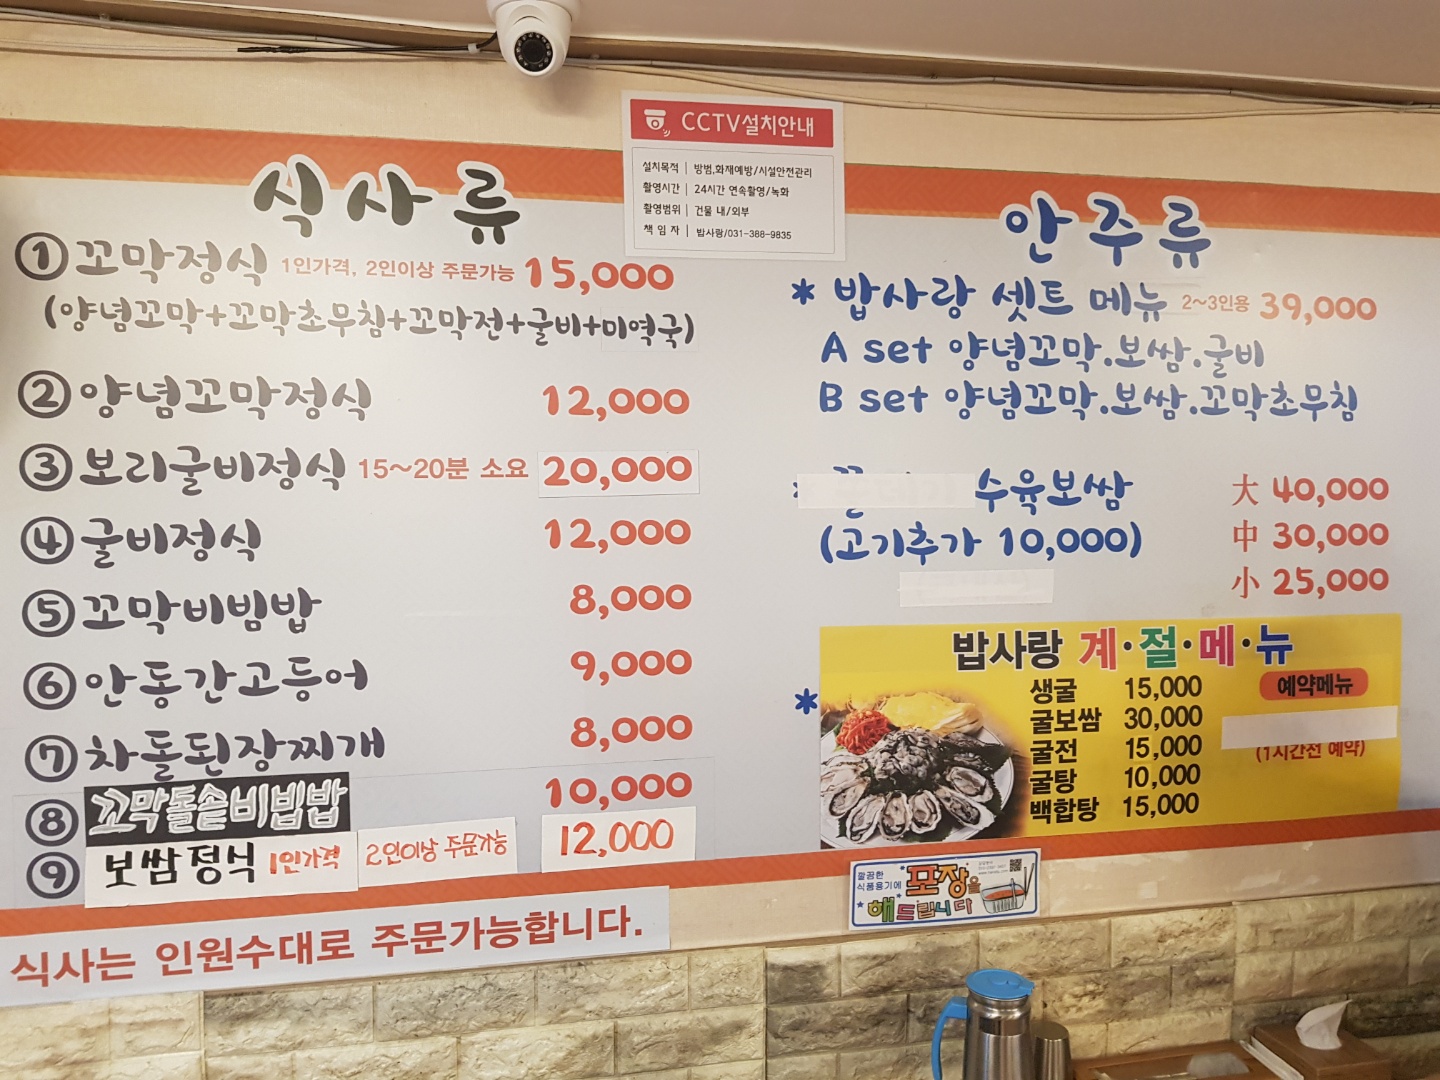 CCTV설치안내
설치목적 | 방범,화재예방/시설안전관리
촬영시간 | 24시간 연속촬영/녹화
촬영범위 | 건물 내/외부
책 임 자 | 밥사랑/031-388-9835
식사류
① 꼬막정식 1인가격, 2인이상 주문가능 15,000
(양념꼬막+꼬막초무침+꼬막전+굴비+미역국)
② 양념꼬막정식 12,000
③ 보리굴비정식 15~20분 소요 20,000
④ 굴비정식 12,000
⑤ 꼬막비빔밥 8,000
⑥ 안동간고등어 9,000
⑦ 차돌된장찌개 8,000
⑧ 꼬막돌솥비빔밥 10,000
⑨ 보쌈정식 1인가격 2인이상 주문가능 12,000
식사는 인원수대로 주문가능합니다.
안주류
* 밥사랑 셋트 메뉴 2~3인용 39,000
A set 양념꼬막.보쌈.굴비
B set 양념꼬막.보쌈.꼬막초무침
수육보쌈 大 40,000
(고기추가 10,000) 中 30,000
小 25,000
*
밥사랑 계·절·메·뉴
생굴 15,000 예약메뉴
굴보쌈 30,000
굴전 15,000 (1시간전 예약)
굴탕 10,000
백합탕 15,000
깔끔한
식품용기에
포장을
해드립니다